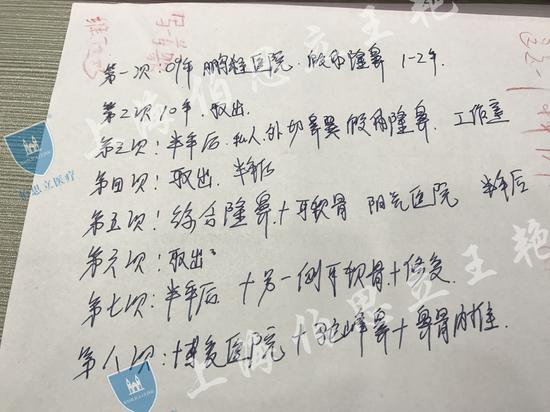 第一次:09年 鹏程医院. 假体隆鼻 1-2年.
第二次 10年. 取出.
第三次: 半年后. 私人外切鼻翼 假体隆鼻. 工作室
第四次: 取出. 半年后
第五次: 综合隆鼻. +耳软骨 阳光医院 半年后
第六次: 取出
第七次: 半年后 +另一侧耳软骨+修复.
第八次: +博爱医院 +驼峰鼻+鼻骨内推.
上海伯思立王艳
伯思立医疗